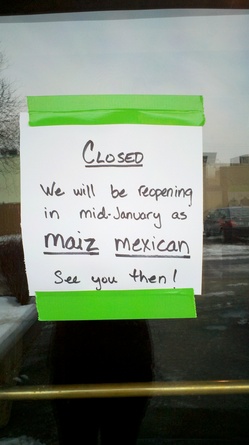 CLOSED
We will be reopening
in mid-January as
maiz mexican
See you then!